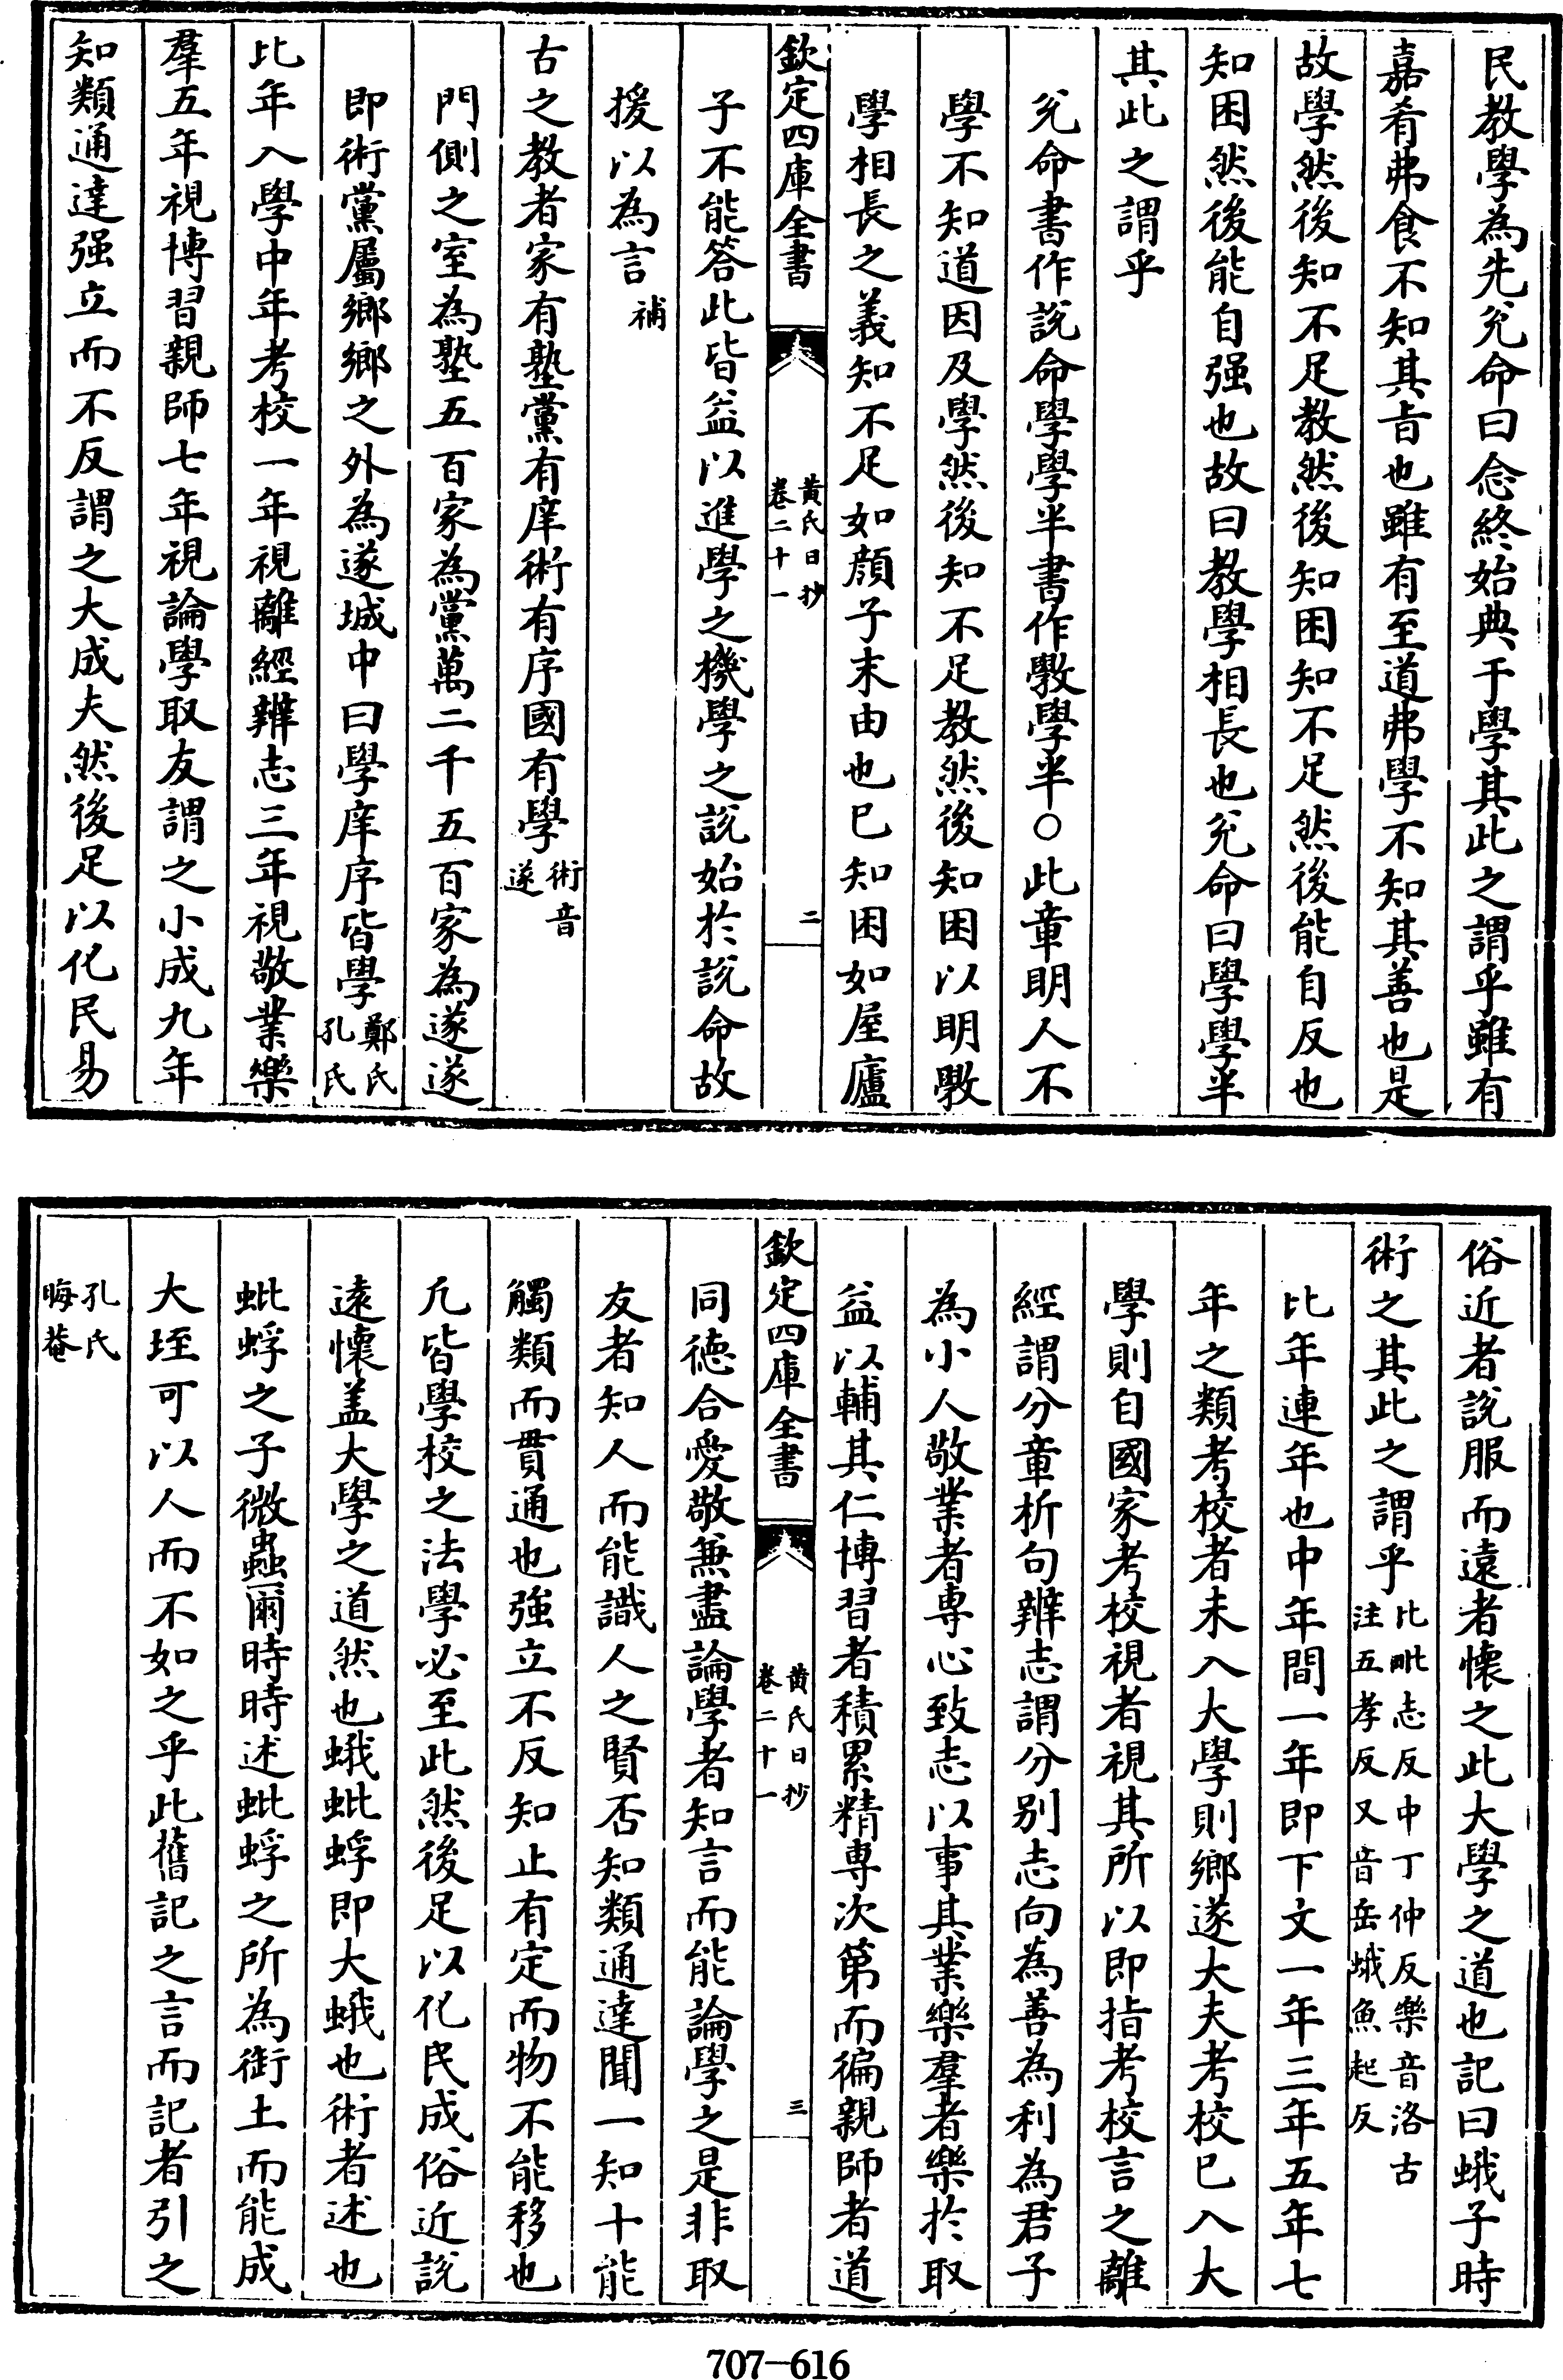 民教學為先兊命曰念終始典于學其此之謂乎雖有
嘉肴弗食不知其旨也雖有至道弗學不知其善也是
故學然後知不足教然後知困知不足然後能自反也
知困然後能自强也故曰教學相長也兊命曰學學半
其此之謂乎
兊命書作說命學學半書作斆學半○此章明人不
學不知道因及學然後知不足教然後知困以明斆
學相長之義知不足如顔子末由也已知困如屋廬
欽定四庫全書
黄氏日抄
卷二十一
二
子不能答此皆益以進學之機學之說始於說命故
援以為言補
古之教者家有塾黨有庠術有序國有學術音
遂
門側之室為塾五百家為黨萬二千五百家為遂遂
即術黨屬鄉鄉之外為遂城中曰學庠序皆學鄭氏
孔氏
比年入學中年考校一年視離經辨志三年視敬業樂
羣五年視博習親師七年視論學取友謂之小成九年
知類通達强立而不反謂之大成夫然後足以化民易
俗近者說服而遠者懷之此大學之道也記曰蛾子時
術之其此之謂乎比毗志反中丁仲反樂音洛古
注五孝反又音岳蛾魚起反
比年連年也中年間一年即下文一年三年五年七
年之類考校者未入大學則鄉遂大夫考校已入大
學則自國家考校視者視其所以即指考校言之離
經謂分章析句辨志謂分别志向為善為利為君子
為小人敬業者專心致志以事其業樂羣者樂於取
益以輔其仁博習者積累精專次第而徧親師者道
欽定四庫全書
黄氏日抄
卷二十一
三
同德合愛敬兼盡論學者知言而能論學之是非取
友者知人而能識人之賢否知類通達聞一知十能
觸類而貫通也強立不反知止有定而物不能移也
凡皆學校之法學必至此然後足以化民成俗近說
遠懷盖大學之道然也蛾蚍蜉即大蛾也術者述也
蚍蜉之子微蟲爾時時述蚍蜉之所為銜土而能成
大垤可以人而不如之乎此舊記之言而記者引之
孔氏
晦菴
707-616